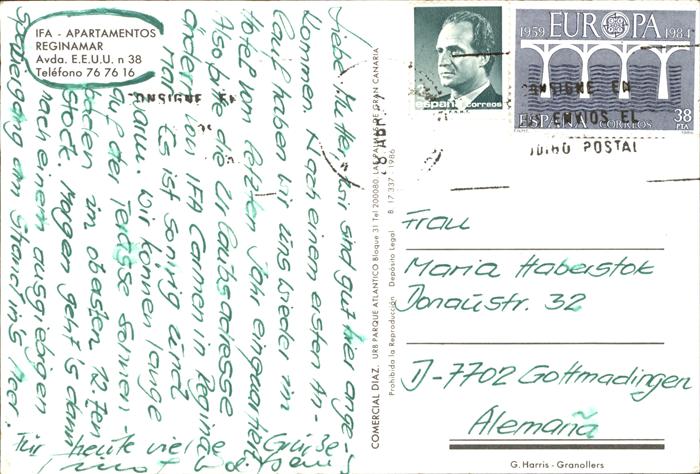 IFA - APARTAMENTOS
REGINAMAR
Avda. E.E.U.U. n 38
Teléfono 76 76 16
españa correos
1959 EUROPA 1984
ESPAÑA CORREOS 38
PTA
CONSIGNE EN
CONSIGNE EN
ENVIOS EL
CODIGO POSTAL
Liebe M Hier, wir sind gut hier ange-
kommen. Nach einem ersten An-
lauf haben wir uns wieder im
Hotel von letzten Jahr einquartiert.
Also bitte die Urlaubsadresse
ändern von IFA Carmen in Regina
Mar. Es ist sonnig und
warm. Wir können lange
auf der Terasse sonnen,
im obersten 12-ten
Stock. Morgen geht's dann
nach einem ausgiebigen
Spaziergang am Strand in's Meer.
Für heute viele Grüße
COMERCIAL DIAZ. URB PARQUE ATLANTICO Bloque 31 Tel 200080. LAS PALMAS DE GRAN CANARIA
Prohibida la Reproducción Depósito Legal B 17 337 - 1986
Frau
Maria Haberstok
Donaustr. 32
D-7702 Gottmadingen
Alemaña
G. Harris - Granollers